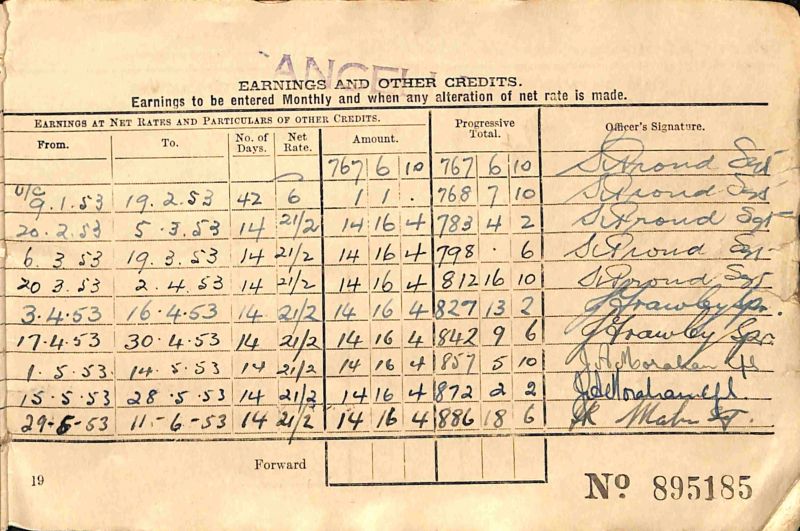 ANGEL
EARNINGS AND OTHER CREDITS.
Earnings to be entered Monthly and when any alteration of net rate is made.
EARNINGS AT NET RATES AND PARTICULARS OF OTHER CREDITS.
From. To. No. of Days. Net Rate. Amount. Progressive Total. Officer's Signature.
767 6 10 767 6 10 S Proud Sgt
U/C
9.1.53 19.2.53 42 6 1 1 . 768 7 10 S Proud Sgt
20.2.53 5.3.53 14 21/2 14 16 4 783 4 2 S Proud Sgt
6.3.53 19.3.53 14 21/2 14 16 4 798 . 6 S Proud Sgt
20.3.53 2.4.53 14 21/2 14 16 4 812 16 10 S Proud Sgt
3.4.53 16.4.53 14 21/2 14 16 4 827 13 2 J Frawley Spr.
17.4.53 30.4.53 14 21/2 14 16 4 842 9 6 J Frawley Spr.
1.5.53 14.5.53 14 21/2 14 16 4 857 5 10
15.5.53 28.5.53 14 21/2 14 16 4 872 2 2
29-5-53 11-6-53 14 21/2 14 16 4 886 18 6
Forward
19
Nº 895185